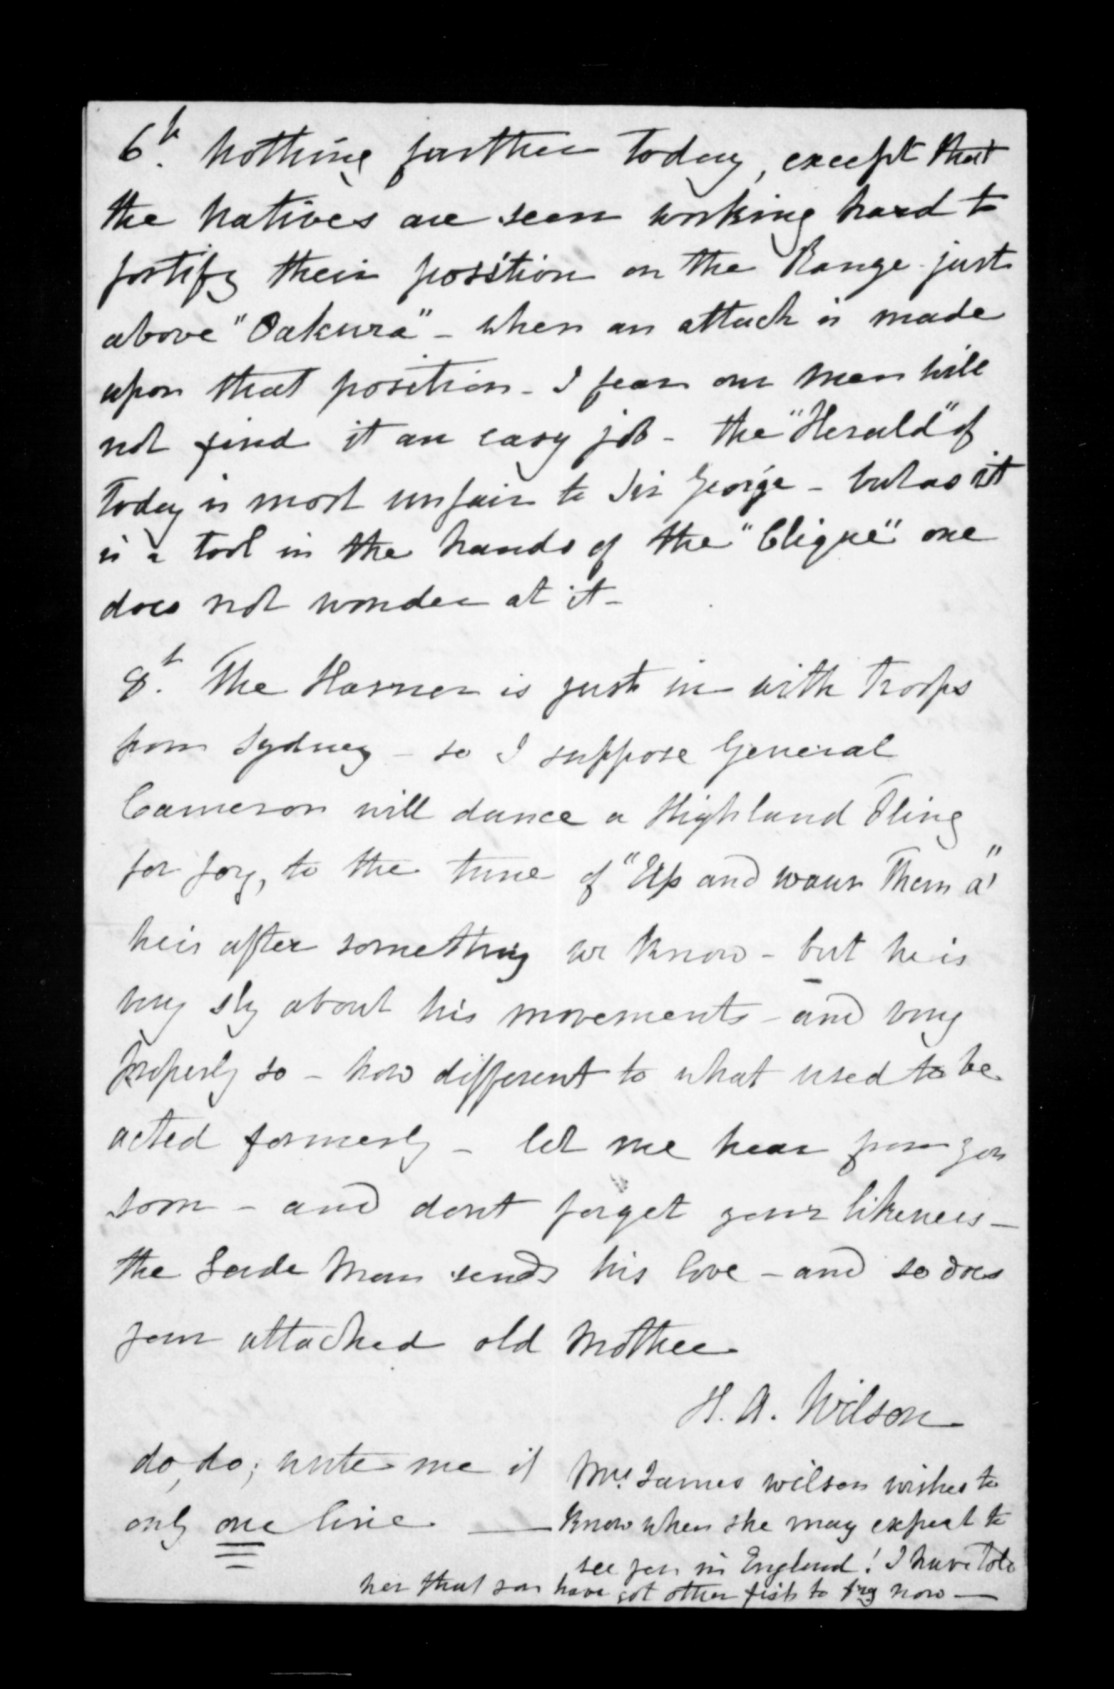 6th. Nothing further today, except that
the Natives are seen working hard to
fortify their position on the Range just
above "Oakura" - when an attack is made
upon that position - I fear our Men will
not find it an easy job - the "Herald" of
Today is most unfair to Sir George - but as it
is a tool in the hands of the "Clique" one
does not wonder at it -
8th. The Harrier is just in with Troops
from Sydney - so I suppose General
Cameron will dance a Highland Fling
for joy, to the tune of "Up and waur Them a'"
he is after something we know - but he is
very sly about his movements - and very
properly so - how different to what used to be
acted formerly - let me hear from you
soon - and dont forget your likeness -
the Man sends his love - and so does
your attached old Mother
H. A. Wilson
do, do; write me if
only one line
Mrs. James Wilson wishes to
Know when she may expect to
see you in England! I have told
her that you have got other fish to fry now -